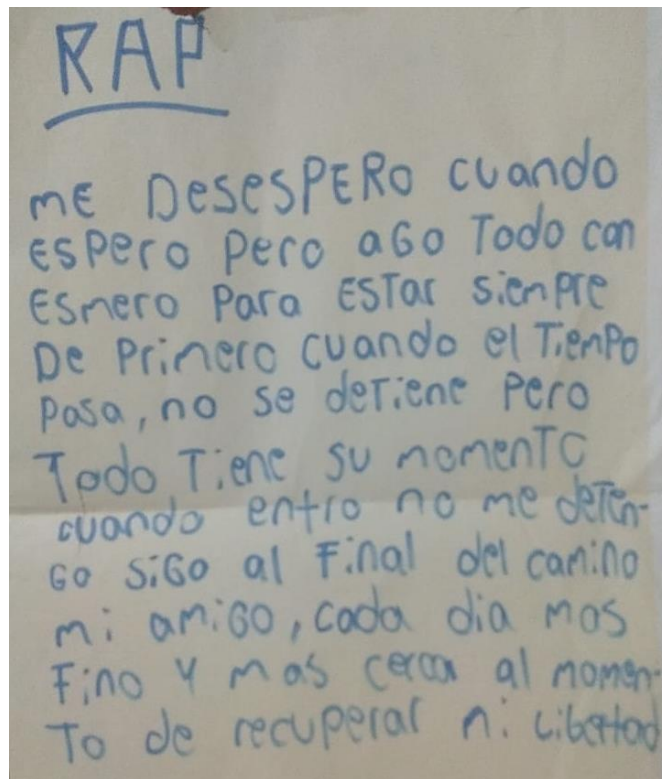 RAP
ME DESESPERO cuando
ESPero Pero aGo Todo con
ESmero Para ESTar SiemPre
De Primero cuando el TiemPo
Pasa, no se deTiene Pero
Todo Tiene su momenTo
cuando entro no me deTen-
Go SiGo al Final del camino
mi amiGo, cada dia mas
Fino y mas cerca al momen-
To de recuperar mi LiberTad